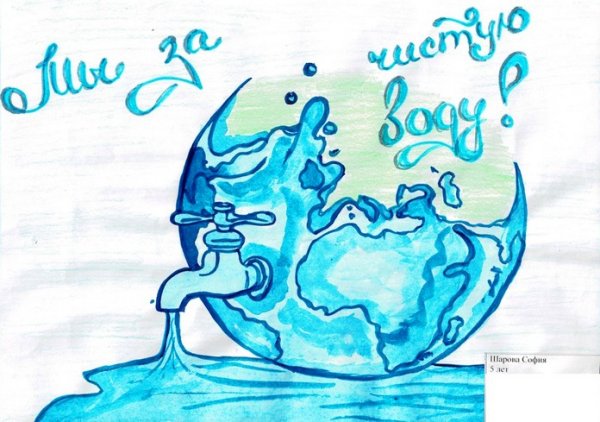 Мы за чистую
воду!
Шарова София
5 лет